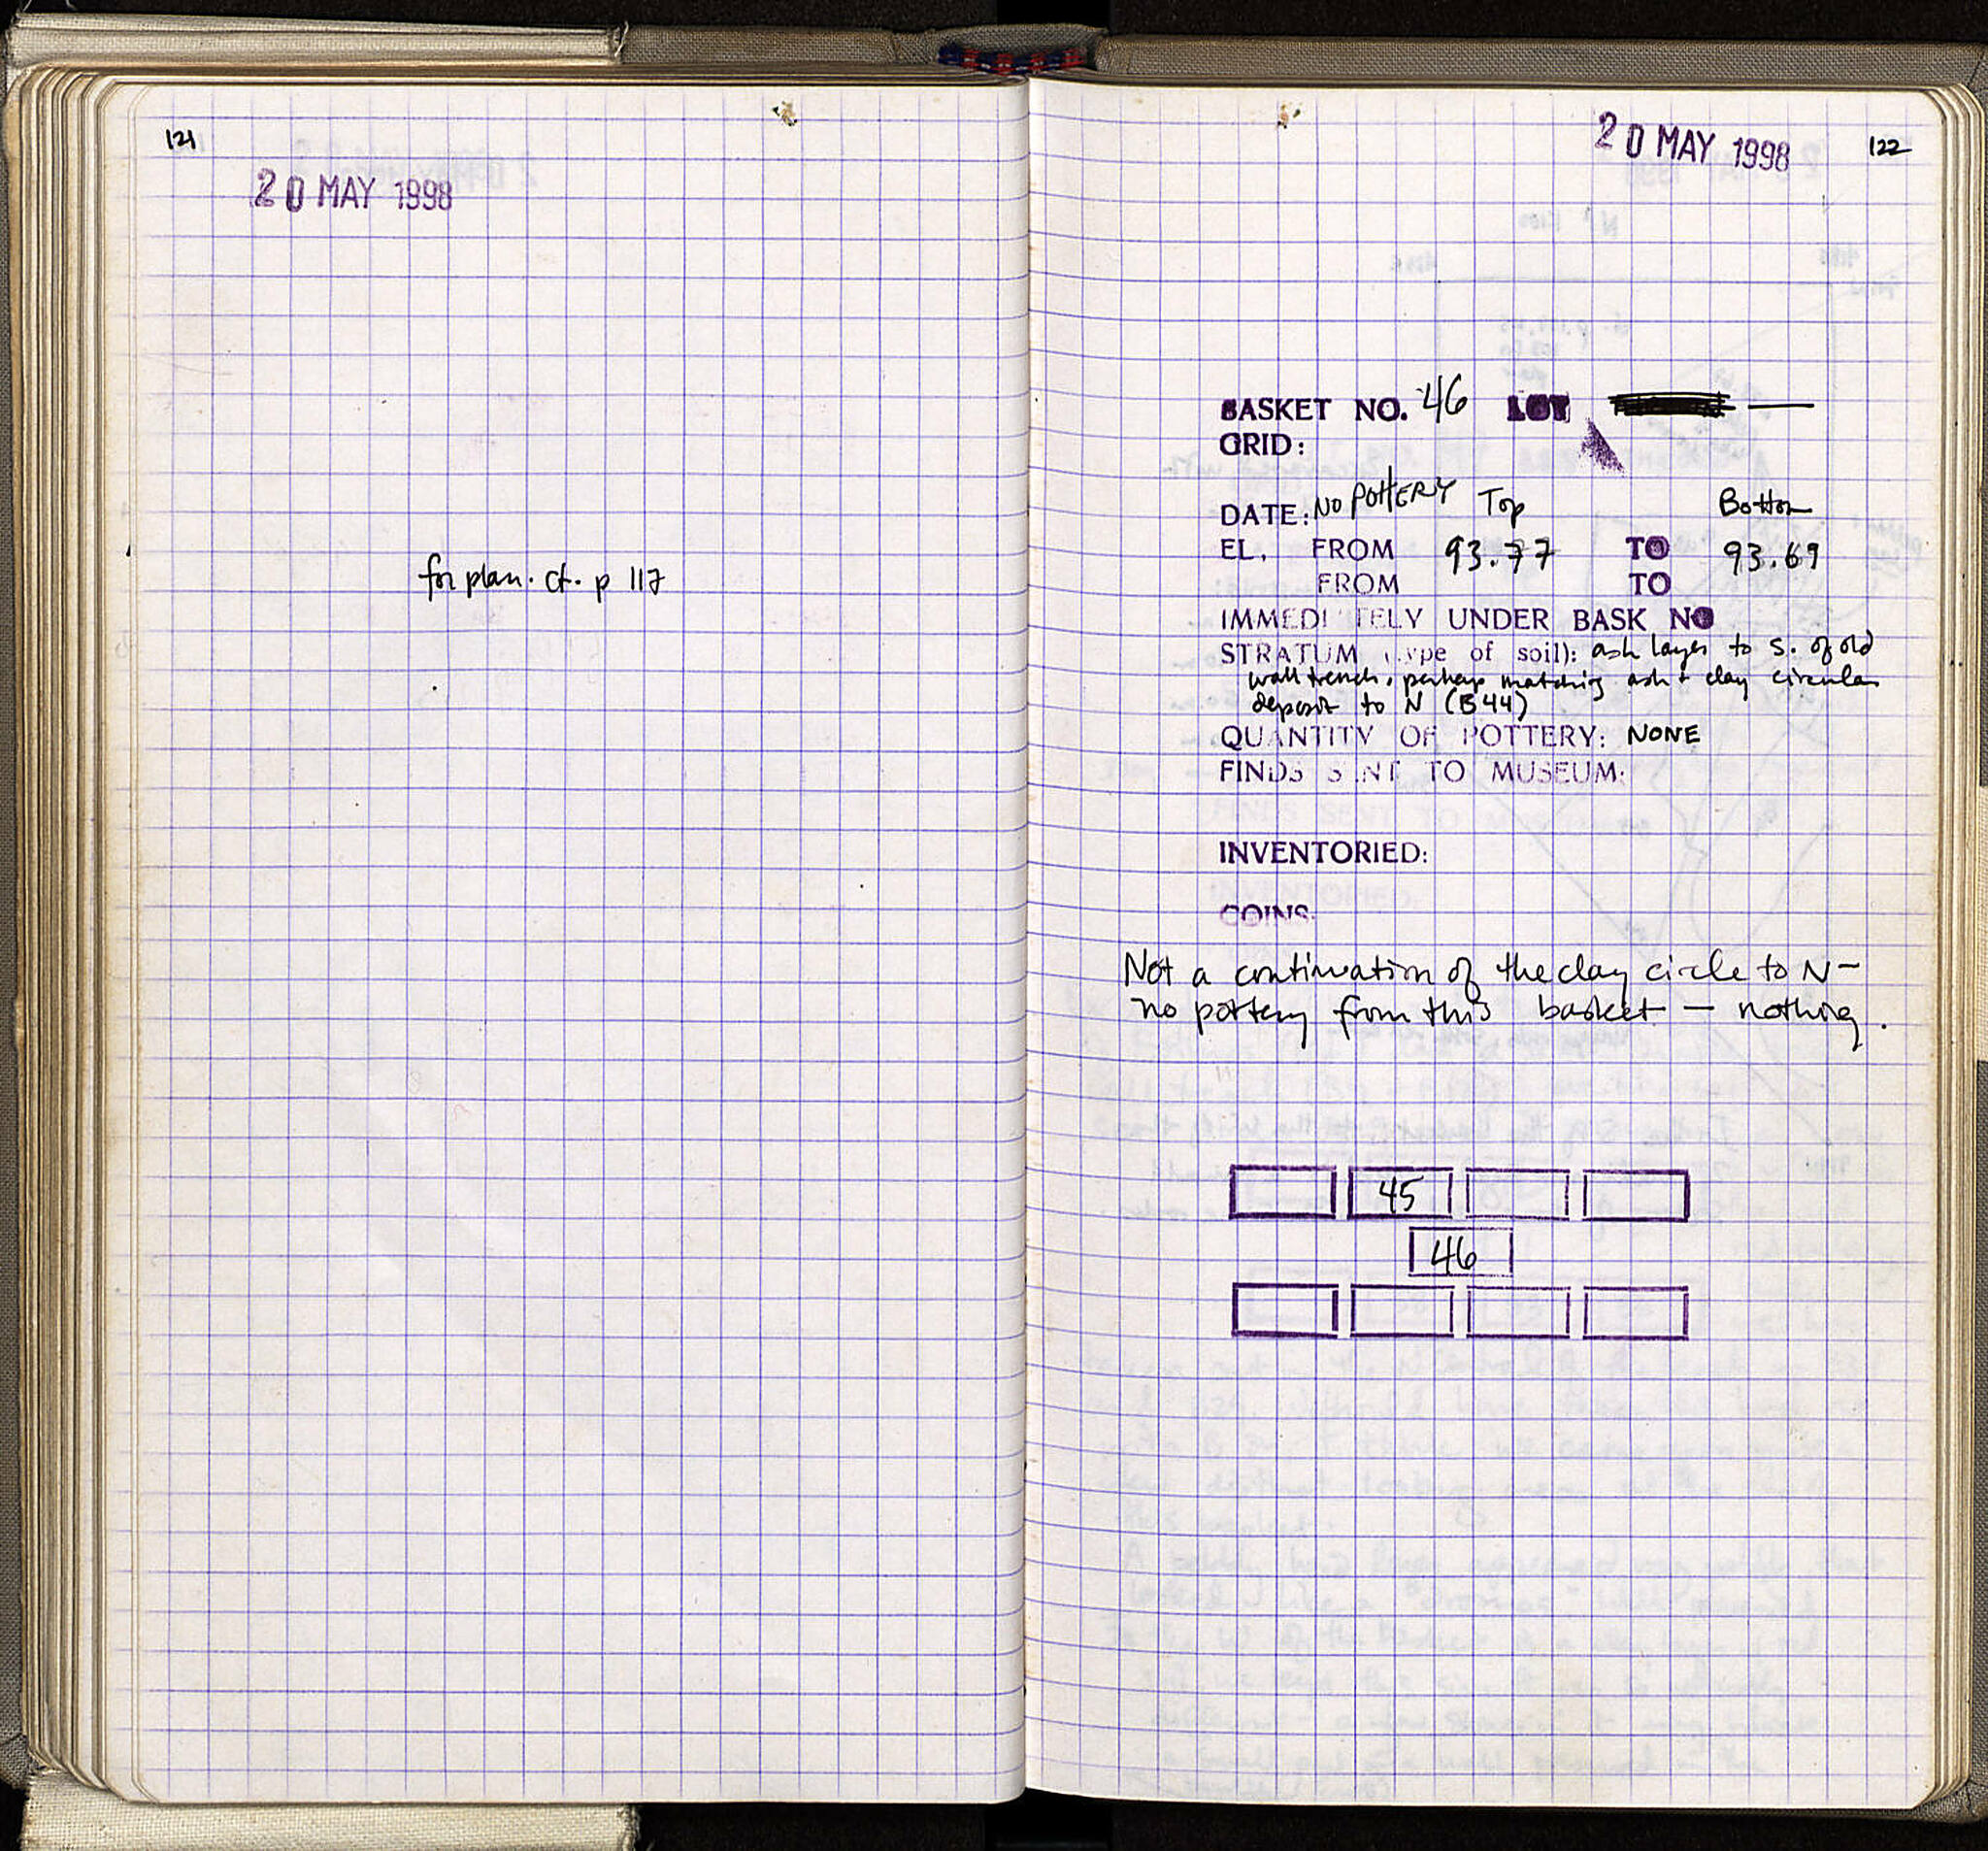 121
20 MAY 1998
for plan. cf. p 117
20 MAY 1998
122
BASKET NO. 46 LOT —
GRID:
DATE: NO POTTERY Top Bottom
EL, FROM 93.77 TO 93.69
FROM TO
IMMEDI TELY UNDER BASK NO
STRATUM ( ype of soil): ash layer to S. of old
wall trench, perhaps matching ash + clay circular
deposit to N (B44)
QUANTITY OF POTTERY: NONE
FINDS S NT TO MUSEUM:
INVENTORIED:
COINS:
Not a continuation of the clay circle to N -
no pottery from this basket - nothing.
45
46